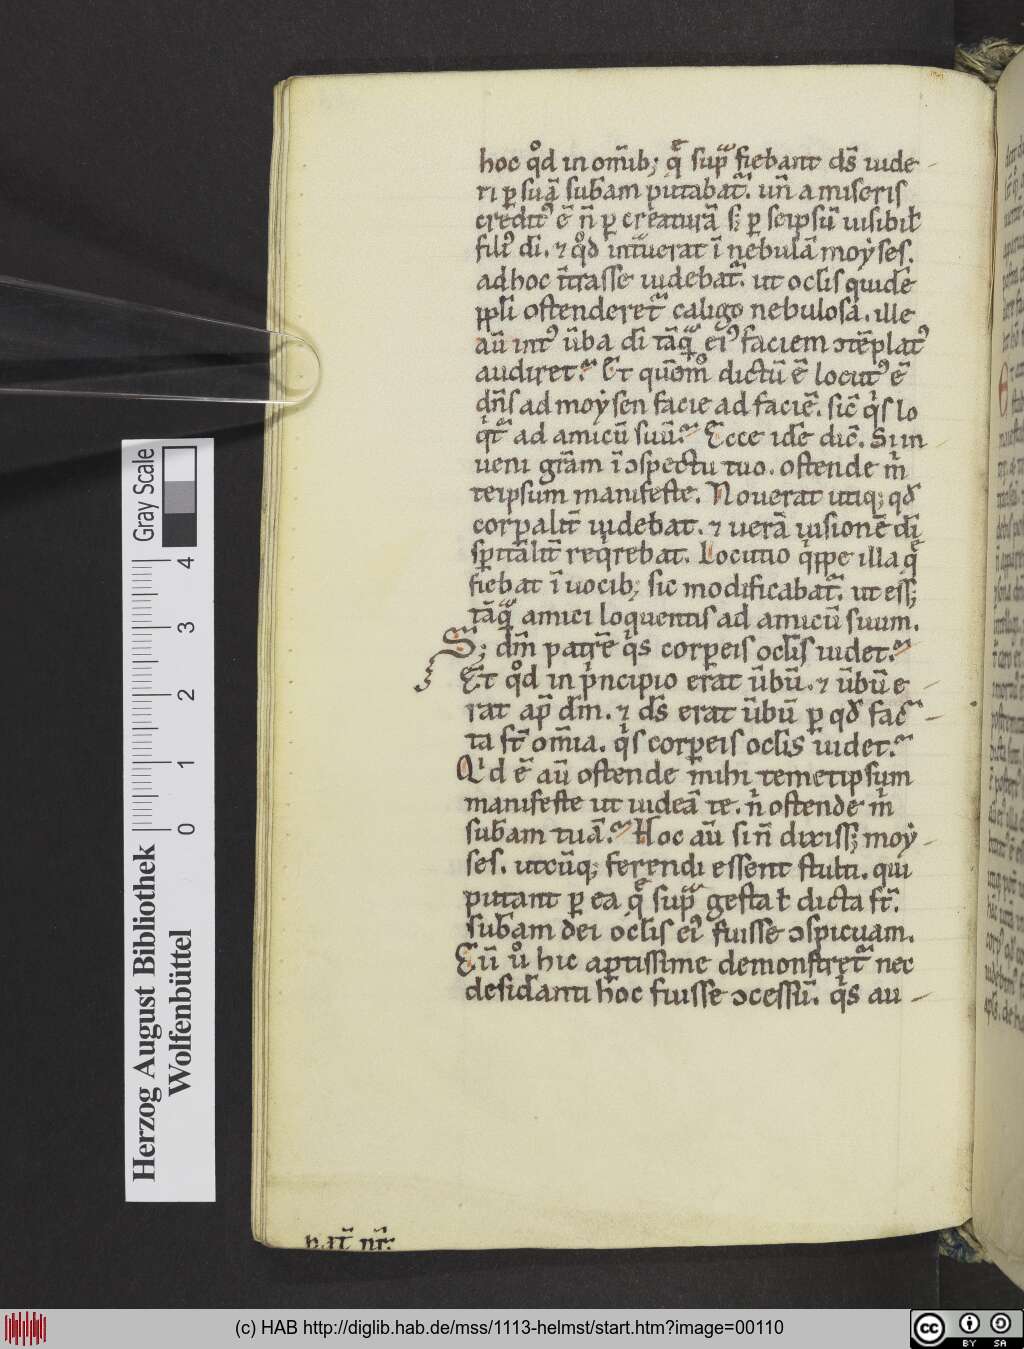 hoc qͦd in om̄ib; q̄ sup̄ fiebant ds̄ uide-
ri ꝑ suā sub̄am putabat᷑. un̄ a miseris
credit᷒ ē n̄ ꝑ creaturā s; ꝑ seipsū uisibil̵
fili᷒ dī. ⁊ qͦd int᷑uerat ī nebulā moẏses.
ad hoc īt᷑asse uidebat᷑. ut oc̄lis quidē
ppl̄i ostenderet᷑ caligo nebulosa. ille
aū int᷒ ūba dī tāq̄ ei᷒ faciem ꝯtēplat᷒
audiret. Et quōm̄ dictū ē locut᷒ ē
dn̄s ad moẏsen facie ad faciē. sic̄ qͥs lo
qt᷑ ad amicū suū. Ecce idē dic̄. Si in
ueni gr̄am ī ꝯspectu tuo. ostende m̄
teipsum manifeste. Nouerat utiq; qd̄
corꝑalit̄ uidebat. ⁊ uerā uisionē dī
sp̄itālit̄ reqͥrebat. Locutio qͥppe illa q̄
fiebat ī uocib; sic modificabat᷑. ut ess;
tāq̄ amici loquentis ad amicū suum.
S; dm̄ patrē qͥs corꝑeis oc̄lis uidet.
Et qͦd in pͥncipio erat ūbū. ⁊ ūbū e-
rat ap̄ dm̄. ⁊ ds̄ erat ūbū ꝑ qd̄ fac-
ta st̄ om̄ia. qͥs corꝑeis oc̄lis uidet.
Qͥd ē aū ostende mihi temetipsum
manifeste ut uideā te. nͥ ostende m̄
sub̄am tuā. Hoc aū si n̄ dixiss; moẏ-
ses. utcūq; ferendi essent stulti. qui
putant ꝑ ea q̄ sup̄ gesta ł dicta st̄.
sub̄am dei oc̄lis ei᷒ fuisse ꝯspicuam.
Cū uͦ hic aꝑtissime demonstret᷑ nec
desid̄anti hoc fuisse ꝯcessū. qͥs au-
Herzog August Bibliothek
Wolfenbüttel
Gray Scale
0 1 2 3 4
(c) HAB http://diglib.hab.de/mss/1113-helmst/start.htm?image=00110
cc BY SA